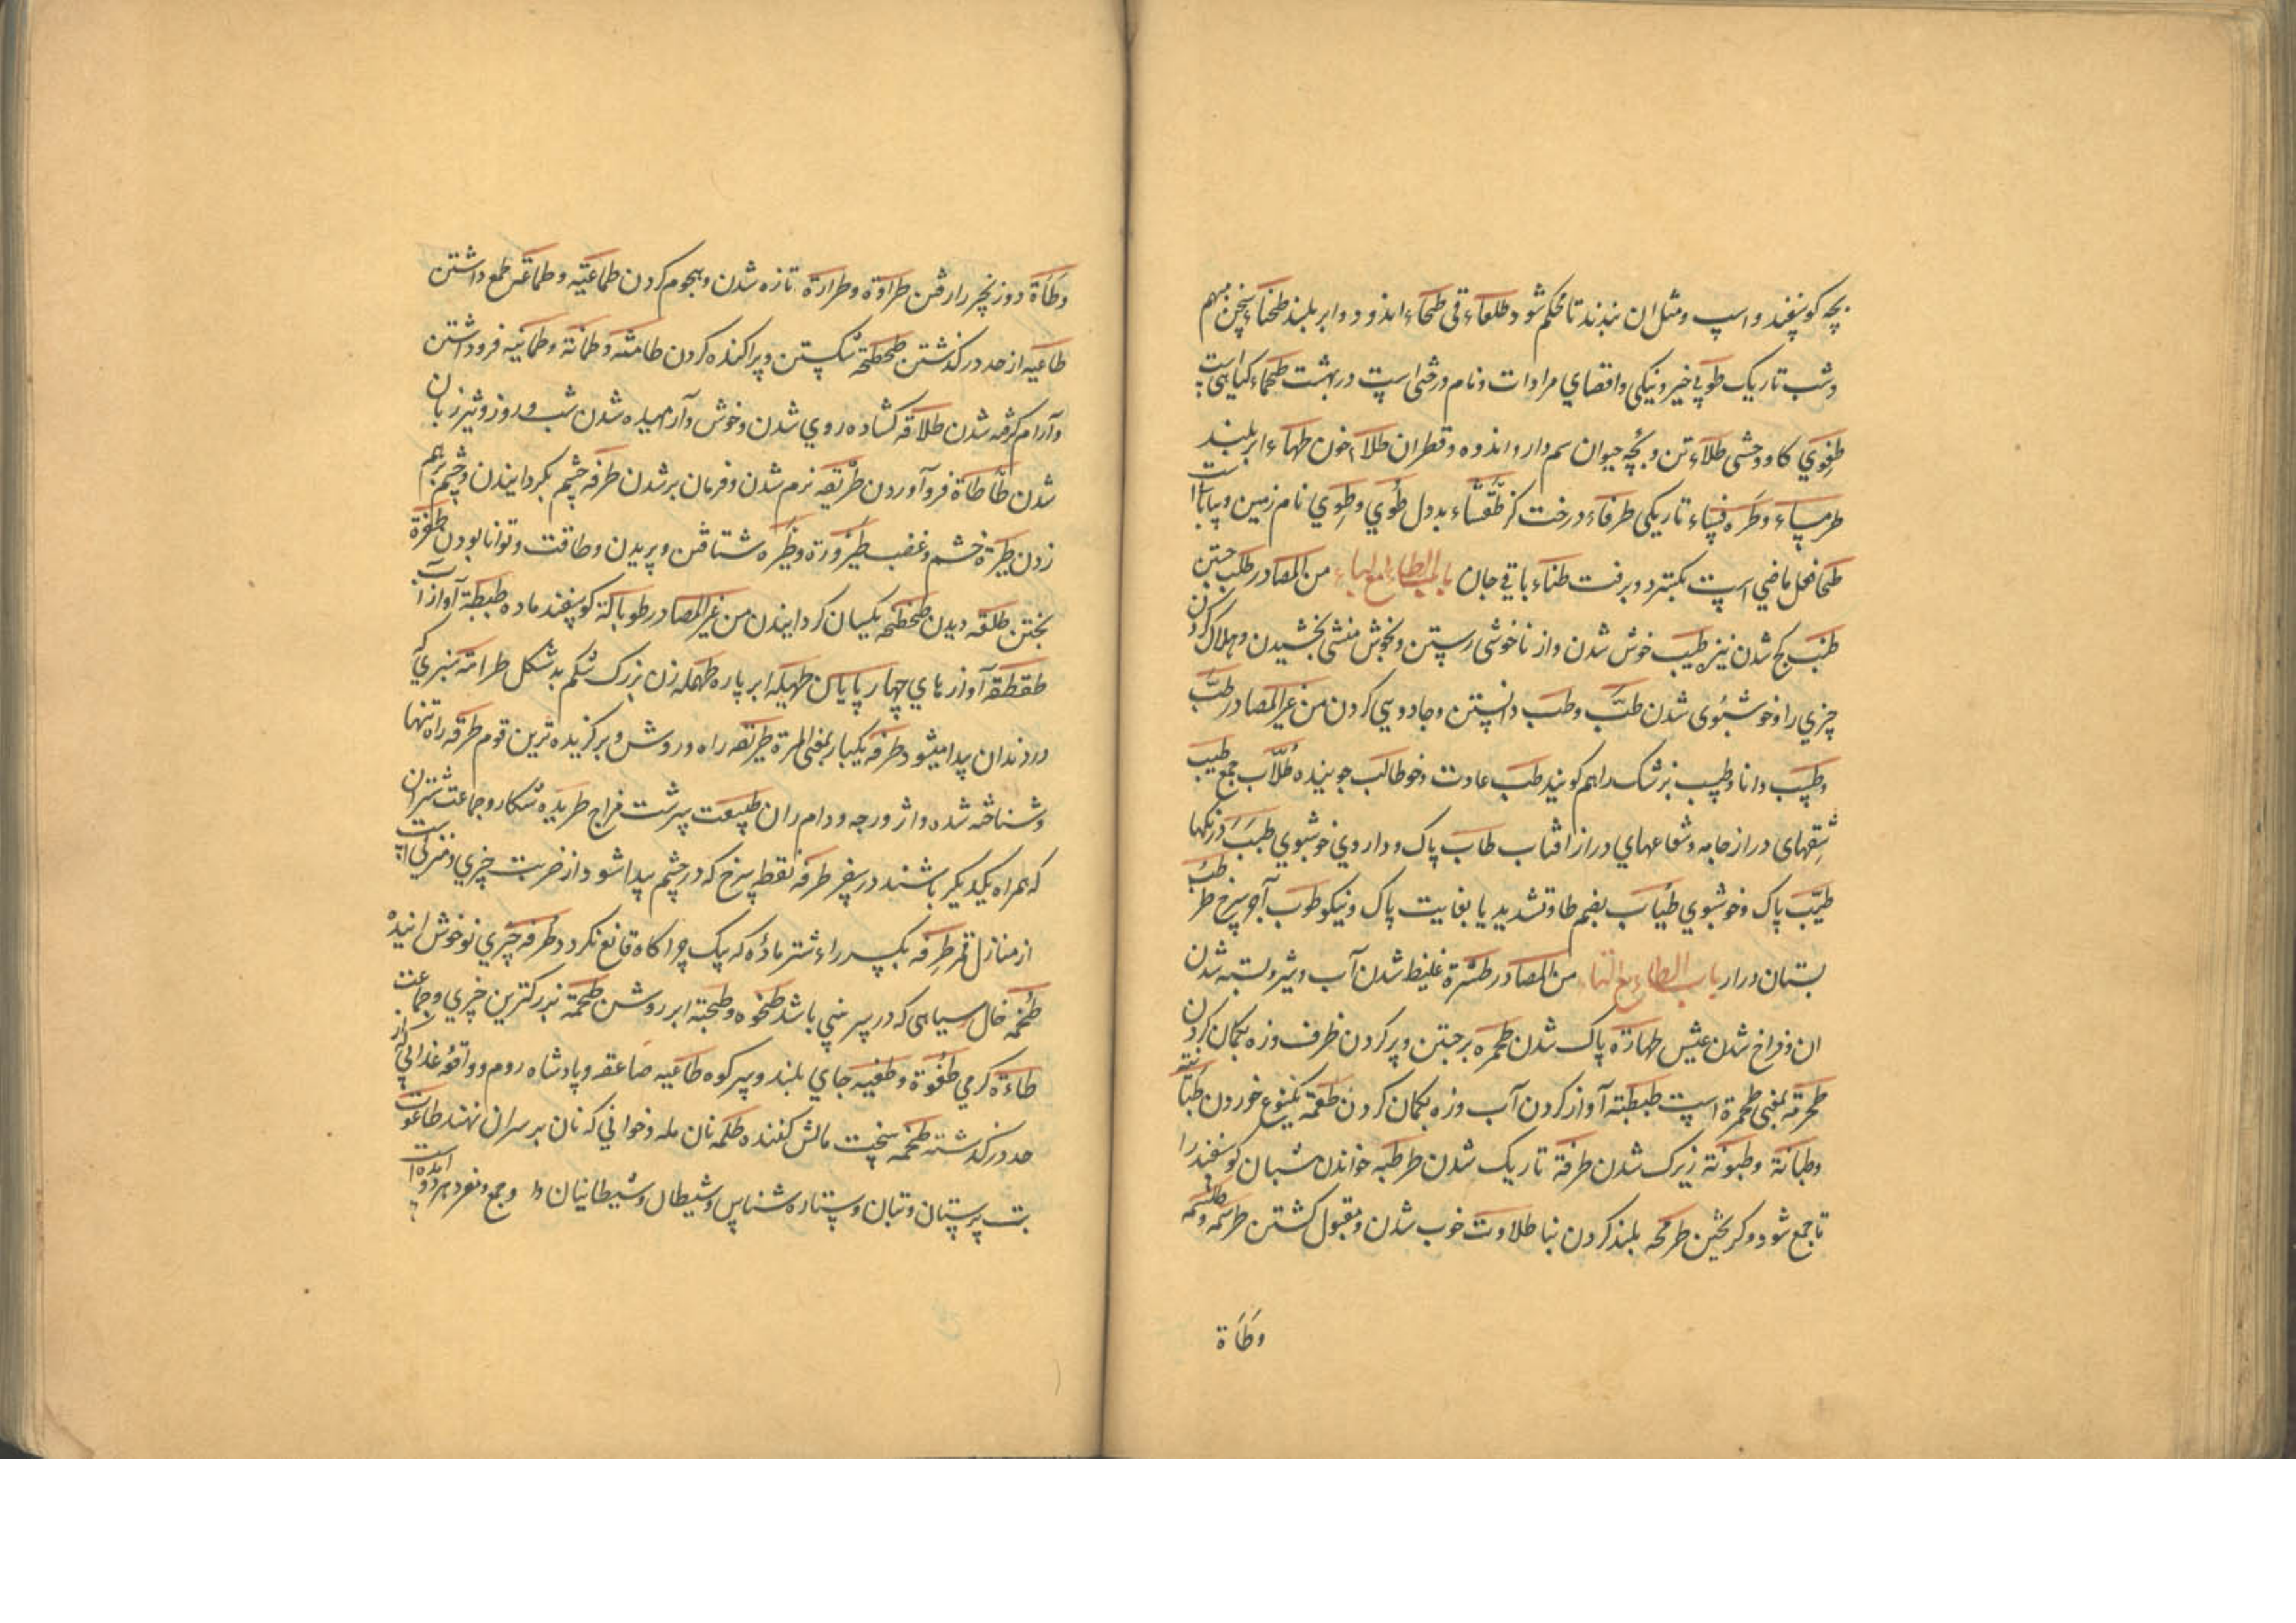 بچه کوسفند واسپ ومثل ان ببندند تا محکم شود طلعاء قی طخاء اندوه وابر بلند طخیاء سخن مبهم
وشب تاریک طوبی خیر ونیکی واقصای مرادات ونام درختی است در بهشت طحماء کیاهی است
طغوی کاو وحشی طلاء تن وبچه حیوان سم دار واندوه وقطران طلاء خون طهاء ابر بلند
طرمساء وطرفساء تاریکی طرفاء درخت کز طغساء بددل طوی وطوی نام زمین وبیابانست
طحا فعل ماضی است بکسترد وبرفت طناء باقی جان باب الطاء مع الباء من المصادر طلب جستن
طنب کج شدن نیزه طیب خوش شدن واز ناخوشی رستن وبخوش منشی بخشیدن وهلاک کردن
چیزی را وخوشبوی شدن طب وطب دانستن وجادویی کردن من غیر المصادر طب
وطبیب دانا وطبیب بزشک را هم کویند طب عادت وخو طالب جوینده طلاب جمع طبیب
شقهای دراز جامه وشعاعهای دراز افتاب طاب پاک وداروی خوشبوی طبب
طیب پاک وخوشبوی طیاب بضم طا وتشدید یا بغایت پاک ونیکو طوب آجر سرخ
بستان دراز باب الطاء مع التاء من المصادر طثرة غلیظ شدن آب وشیر وبسته شدن
ان وفراخ شدن عیش طهارة پاک شدن طحمره برجستن وپر کردن ظرف وزه بکمان کردن
طحرقة بمعنی طحمرة است طبطبته آواز کردن آب وزه بکمان کردن طعمة یکنوع خوردن
وطبانة وطبونة زیرک شدن طرفة تاریک شدن طرطبه خواندن شبان کوسفند را
تا جمع شود وکریختن طرمحه بلند کردن بنا طلاوت خوب شدن ومقبول کشتن طرسمه وطلسمه
وطأة
وطأة دوزنجیر را رفتن طراوة وطرارة تازه شدن وهجوم کردن طماعیة وطماعة طمع داشتن
طاغیه از حد درکذشتن طحطحة شکستن وپراکنده کردن طامنته وطمانة وطمانینه فرو داشتن
وآرام کرفته شدن طلاقة کشاده روی شدن وخوش وآرمیده شدن شب وروز وتیز زبان
شدن طأطأة فرو آوردن طریقة نرم شدن وفرمان بر شدن طرفه چشم بکردانیدن وچشم برهم
زدن طیرة خشم وغضب طیرورة وطیره شتافتن وپریدن وطاقت وتوانا بودن طفرة
بجستن طلقه دیدن طحطحة یکسان کردانیدن من غیر المصادر طوبالة کوسفند ماده طبطبة آواز آب
طقطقة آوازهای چهارپایان طهیله ابر پاره طهمله زن بزرک شکم بدشکل طرامة سبزی که
در دندان پیدا میشود طرفه یکبار بمعنی المرة طریقه راه وروش وبرکزیده ترین قوم طرقه راه تنها
وشناخته شده واثر ودرجه ودام ران طبیعت سرشت مزاج طریده شکار وجماعت شتران
که همراه یکدیکر باشند در سفر طرفه نقطه سرخ که در چشم پیدا شود از ضربت چیزی ومنزلی است
از منازل قمر طرفه بکسر را شتر ماده که بیک چراکاه قانع نکردد طرفه چیزی نو خوش آینده
طخمه خال سیاهی که در سر بینی باشد طخوه وطخیه ابر روشن طحمة بزرکترین چیزی وجماعت
طاءة کرمی طغوة وطغیه جای بلند وسر کوه طاغیه صاعقه وپادشاه روم وواقعه عذابی که از
حد درکذشته طخمه سخت مالش کننده طلمه نان مله وخوانی که نان بر سر ان نهند طاغوت
بت پرستان وبتان وستاره شناس وشیطان وشیطانیان وا وجمع ومفرد هر دو آمده است